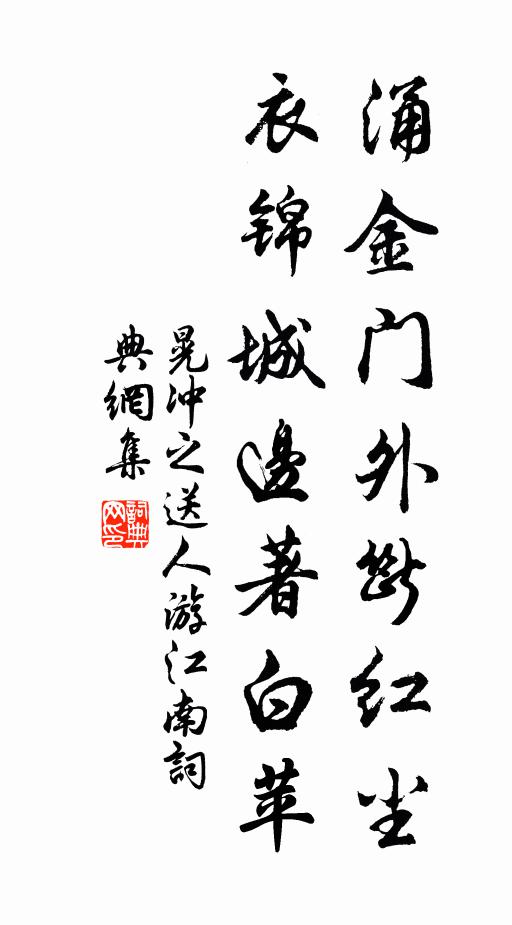 涌金门外断红尘
衣锦城邊著白苹
晁冲之送人游江南詞
典網集
詞典网印